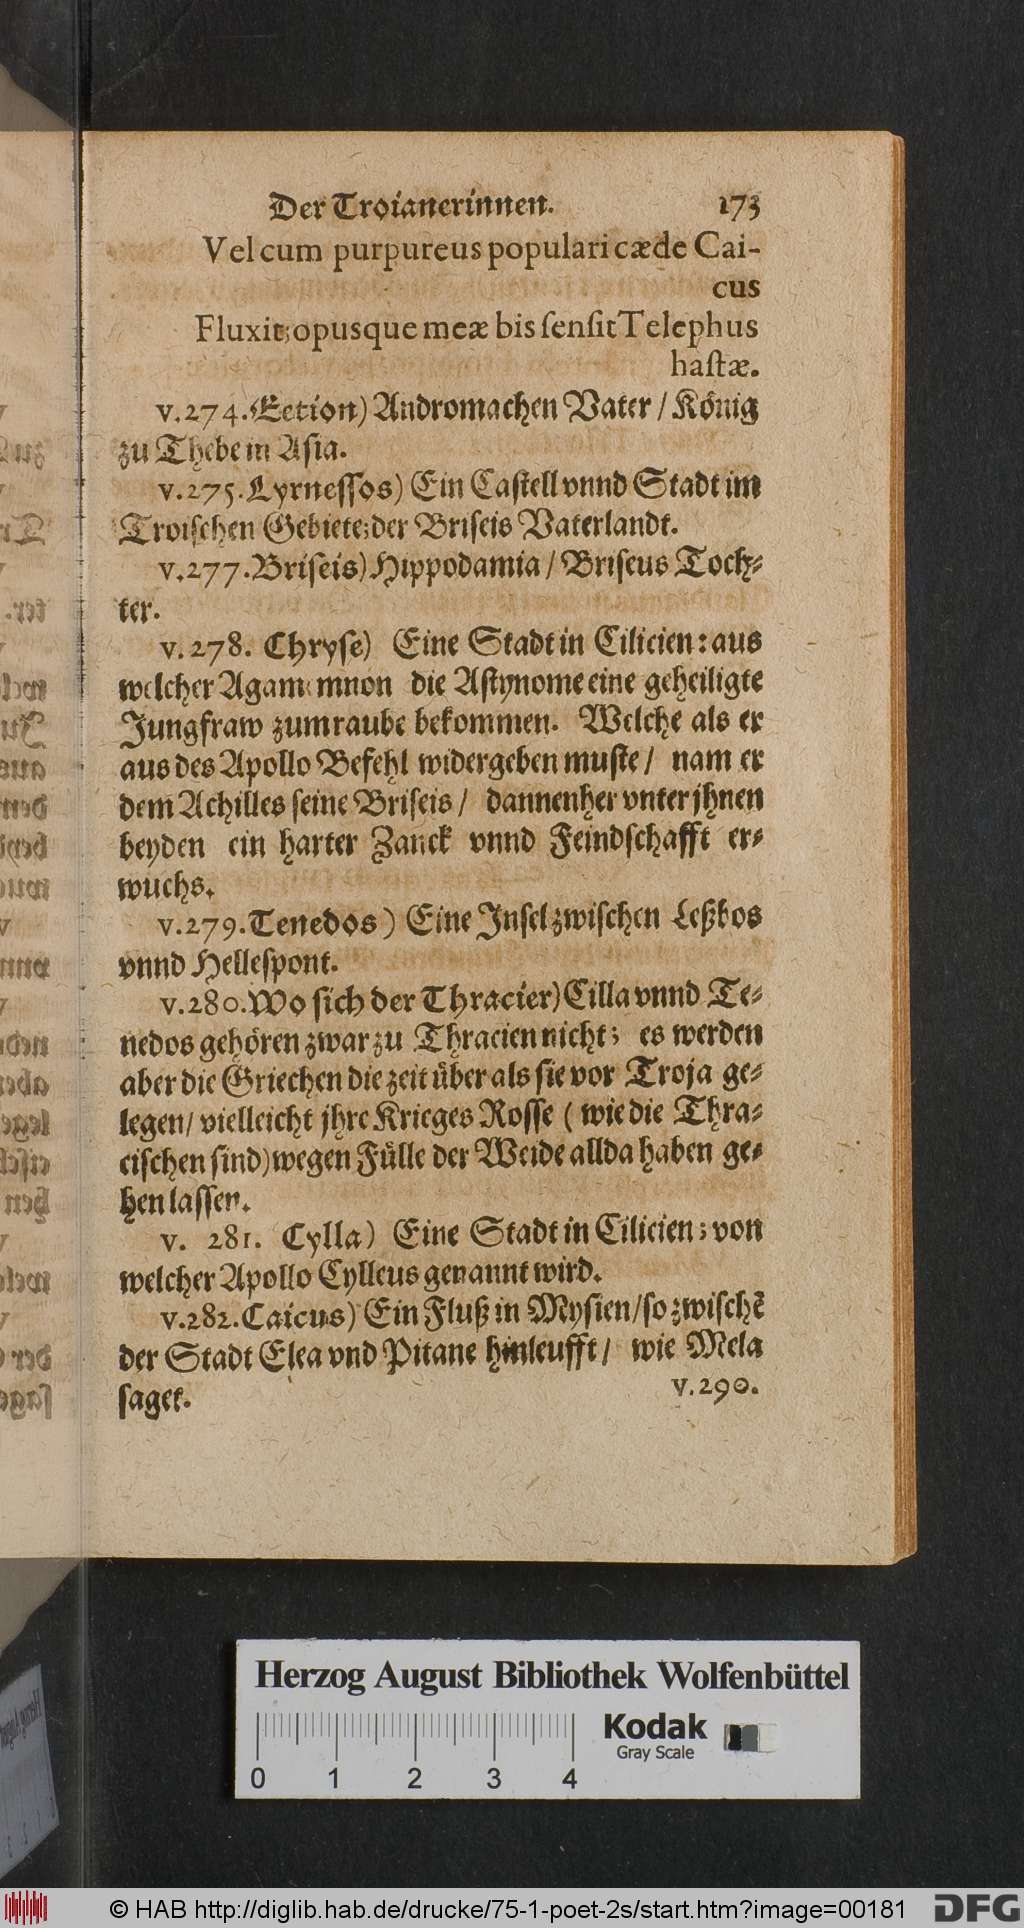 Der Troianerinnen. 173
Vel cum purpureus populari cæde Cai-
cus
Fluxit; opusque meæ bis ſenſit Telephus
haſtæ.
v.274. Eetion) Andromachen Vater / König
zu Thebe in Aſia.
v.275. Lyrneſſos) Ein Caſtell vnnd Stadt im
Troiſchen Gebiete; der Briſeis Vaterlandt.
v.277. Briſeis) Hippodamia / Briſeus Toch-
ter.
v.278. Chryſe) Eine Stadt in Cilicien: aus
welcher Agamemnon die Aſtynome eine geheiligte
Jungfraw zum raube bekommen. Welche als er
aus des Apollo Befehl widergeben muſte / nam er
dem Achilles ſeine Briſeis / dannenher vnter jhnen
beyden ein harter Zanck vnnd Feindſchafft er-
wuchs.
v.279. Tenedos) Eine Inſel zwiſchen Leßbos
vnnd Helleſpont.
v.280. Wo ſich der Thracier) Cilla vnnd Te-
nedos gehören zwar zu Thracien nicht; es werden
aber die Griechen die zeit über als ſie vor Troja ge-
legen / vielleicht jhre Krieges Roſſe ( wie die Thra-
ciſchen ſind) wegen Fülle der Weide allda haben ge-
hen laſſen.
v. 281. Cylla) Eine Stadt in Cilicien; von
welcher Apollo Cylleus genannt wird.
v.282. Caicus) Ein Fluß in Myſien / ſo zwiſchẽ
der Stadt Elea vnd Pitane hinleufft / wie Mela
ſaget.
v.290.
Herzog August Bibliothek Wolfenbüttel
Kodak
Gray Scale
0 1 2 3 4
© HAB http://diglib.hab.de/drucke/75-1-poet-2s/start.htm?image=00181
DFG